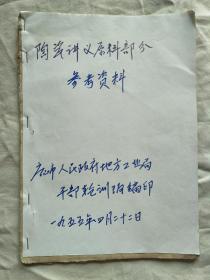 陶瓷讲义原料部分
参考资料
人民政府地方工业局
干部轮训班编印
一九五五年四月二十二日